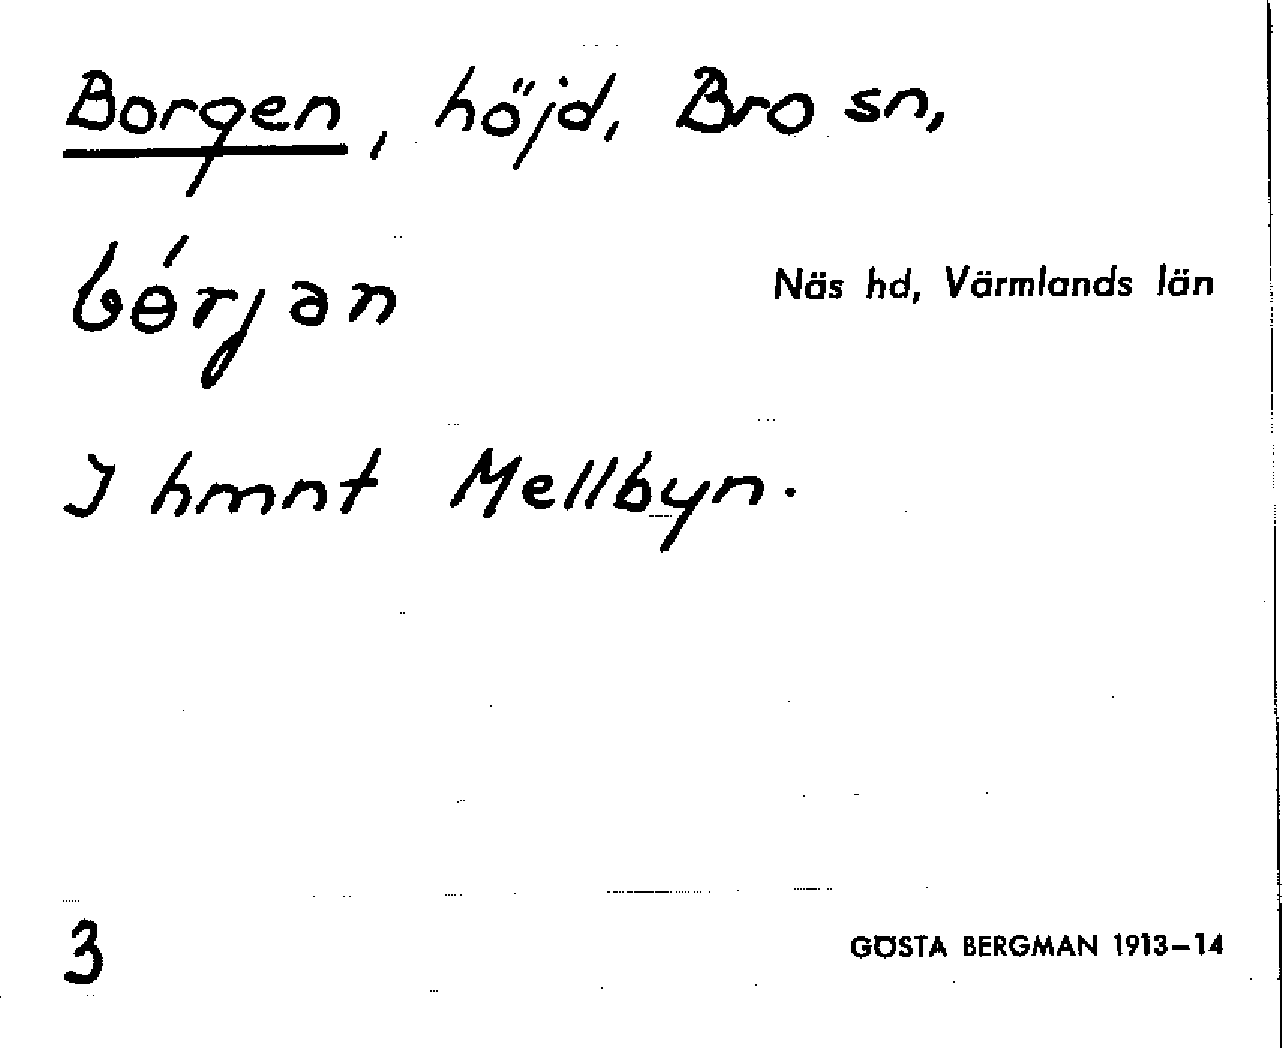 Borgen, höjd, Bro sn,
bɵ́rjan
Näs hd, Värmlands län
I hmnt Mellbyn.
3
GÖSTA BERGMAN 1913–14